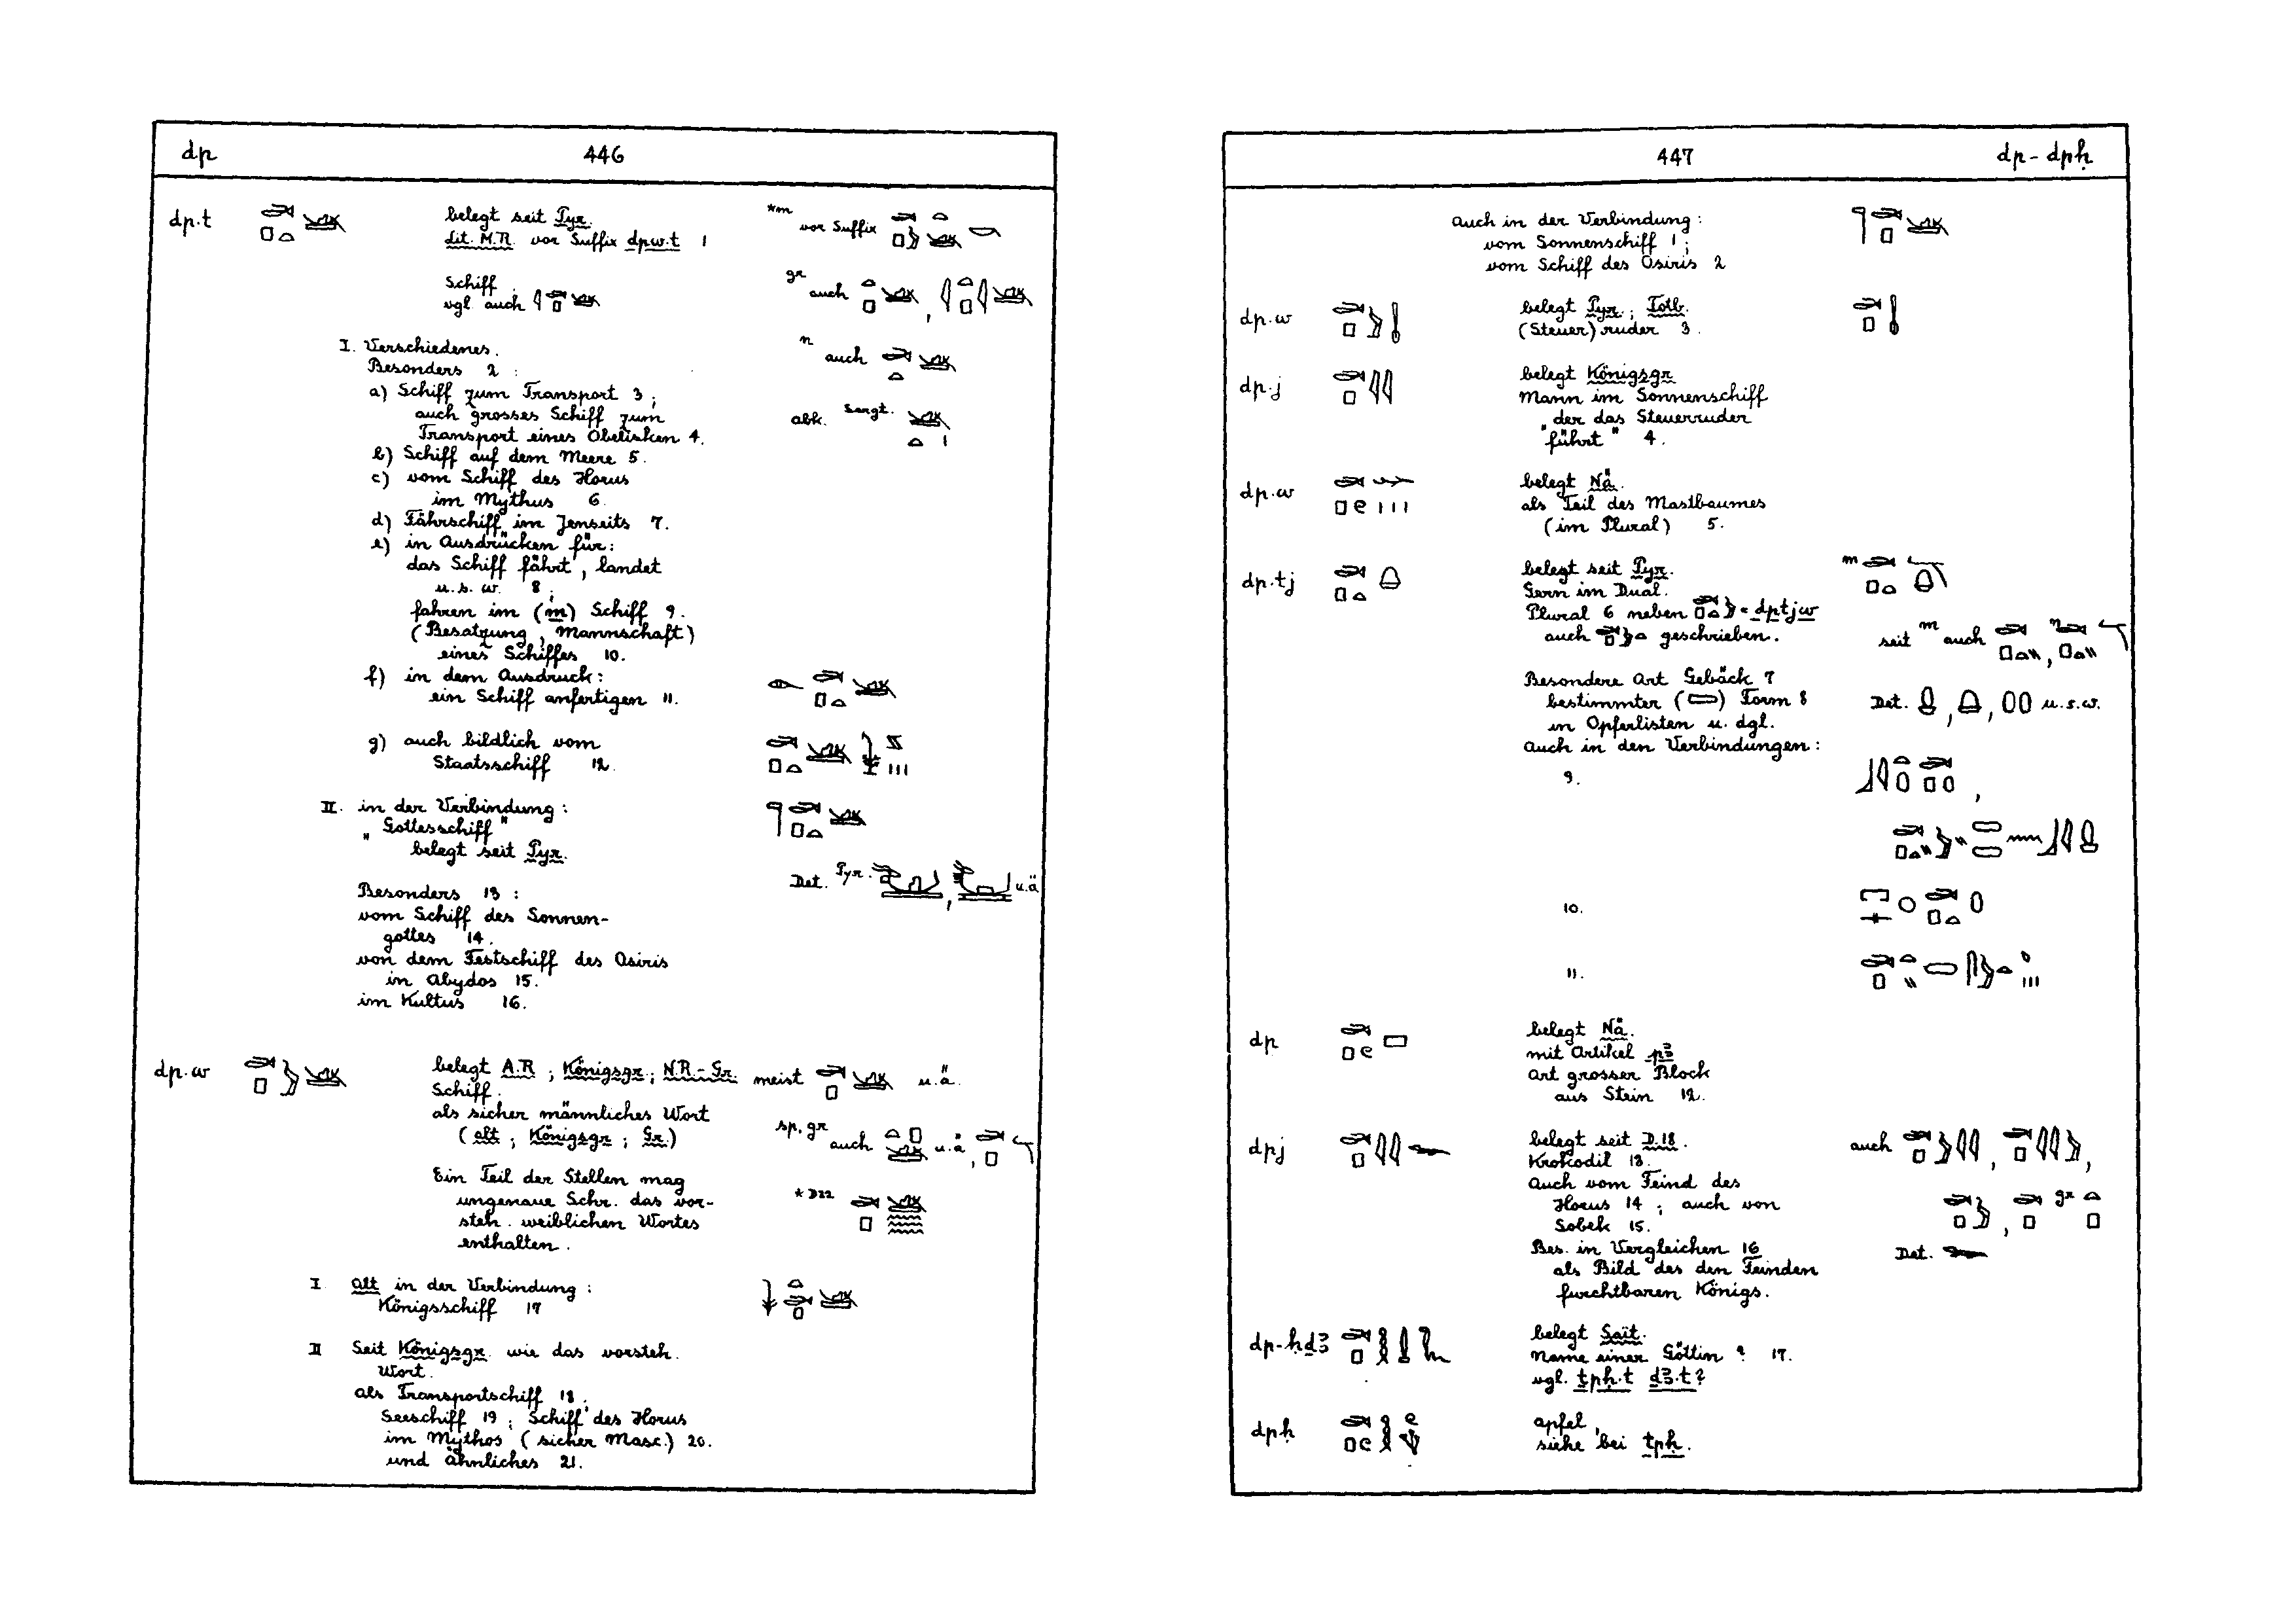 dp 446
dp.t belegt seit Pyr. *m vor Suffix
Lit. M.R. vor Suffix dpw.t 1
Schiff. gr auch ,
vgl auch
I. Verschiedenes. n auch
Besonders 2 :
a) Schiff zum Transport 3 ;
auch grosses Schiff zum abk. Sargt.
Transport eines Obelisken 4.
b) Schiff auf dem Meere 5.
c) vom Schiff des Horus
im Mythus 6.
d) Fährschiff im Jenseits 7.
e) in Ausdrücken für:
das Schiff fährt, landet
u.s.w. 8 ;
fahren im (m) Schiff 9.
(Besatzung, Mannschaft)
eines Schiffes 10.
f) in dem Ausdruck:
ein Schiff anfertigen 11.
g) auch bildlich vom
Staatsschiff 12.
II. in der Verbindung:
"Gottesschiff"
belegt seit Pyr.
Det. Pyr. , u.ä
Besonders 13 :
vom Schiff des Sonnen-
gottes 14.
von dem Festschiff des Osiris
in Abydos 15.
im Kultus 16.
dp.w belegt A.R ; Königsgr ; N.R.-Gr. meist u.ä.
Schiff.
als sicher männliches Wort
(alt ; Königsgr ; Gr.) sp. gr auch u.ä ,
Ein Teil der Stellen mag
ungenaue Schr. das vor- * D22
steh. weiblichen Wortes
enthalten.
I. alt in der Verbindung:
Königsschiff 17
II Seit Königsgr. wie das vorsteh.
Wort.
als Transportschiff 18 ;
Seeschiff 19 ; Schiff des Horus
im Mythos (sicher Masc.) 20.
und ähnliches 21.
447 dp - dpḥ
auch in der Verbindung:
vom Sonnenschiff 1 ;
vom Schiff des Osiris 2
dp.w belegt Pyr ; Totb.
(Steuer)ruder 3.
dp.j belegt Königsgr
Mann im Sonnenschiff
der das Steuerruder
"führt" 4.
dp.w belegt Nä.
als Teil des Mastbaumes
(im Plural) 5.
dp.tj belegt seit Pyr. m
Gern im Dual.
Plural 6 neben = dptjw
auch geschrieben. seit m auch , n
Besondere Art Gebäck 7
bestimmter ( ) Form 8 Det. , , u.s.w.
in Opferlisten u. dgl.
Auch in den Verbindungen:
9. ,
10.
11.
dp belegt Nä.
mit Artikel pꜣ
Art grosser Block
aus Stein 12.
dpj belegt seit D.18. auch , ,
Krokodil 13.
Auch vom Feind des
Horus 14 ; auch von , gr
Sobek 15.
Bes. in Vergleichen 16 Det.
als Bild des den Feinden
furchtbaren Königs.
dp-ḥḏꜣ belegt Sait.
Name einer Göttin ? 17.
vgl. ṯpḥ.t ḏꜣ.t?
dpḥ apfel
siehe bei ṯpḥ.